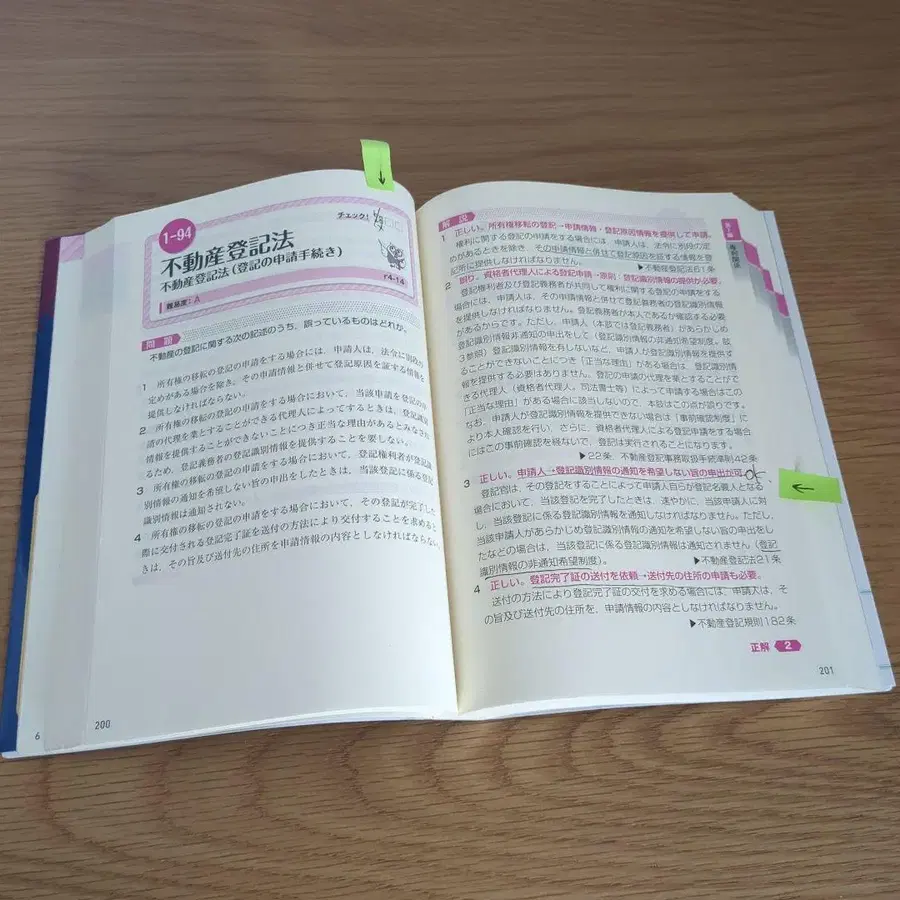 1-94
チェック!
不動産登記法
不動産登記法(登記の申請手続き)
r4-14
難易度:A
問題
不動産の登記に関する次の記述のうち、誤っているものはどれか。
1 所有権の移転の登記の申請をする場合には、申請人は、法令に別段の
定めがある場合を除き、その申請情報と併せて登記原因を証する情報を
提供しなければならない。
2 所有権の移転の登記の申請をする場合において、当該申請を登記の申
請の代理を業とすることができる代理人によってするときは、登記識別
情報を提供することができないことにつき正当な理由があるとみなされ
るため、登記義務者の登記識別情報を提供することを要しない。
3 所有権の移転の登記の申請をする場合において、登記権利者が登記識
別情報の通知を希望しない旨の申出をしたときは、当該登記に係る登記
識別情報は通知されない。
4 所有権の移転の登記の申請をする場合において、その登記が完了した
際に交付される登記完了証を送付の方法により交付することを求めると
きは、その旨及び送付先の住所を申請情報の内容としなければならない。
6
200
解説
1 正しい。所有権移転の登記→申請情報・登記原因情報を提供して申請。
権利に関する登記の申請をする場合には、申請人は、法令に別段の定
めがあるときを除き、その申請情報と併せて登記原因を証する情報を登
記所に提供しなければなりません。
▶不動産登記法61条
2 誤り。資格者代理人による登記申請→原則:登記識別情報の提供が必要。
登記権利者及び登記義務者が共同して権利に関する登記の申請をする
場合には、申請人は、その申請情報と併せて登記義務者の登記識別情報
を提供しなければなりません。登記義務者が本人であるか確認する必要
があるからです。ただし、申請人(本該では登記義務者)があらかじめ
登記識別情報非通知の申出をして(登記識別情報の非通知希望制度。肢
3参照)登記識別情報を有しないなど、申請人が登記識別情報を提供す
ることができないことにつき「正当な理由」がある場合は、登記識別情
報を提供する必要はありません。登記の申請の代理を業とすることがで
きる代理人(資格者代理人。司法書士等)によって申請する場合はこの
「正当な理由」がある場合に該当しないので、本肢はこの点が誤りです。
なお、申請人が登記識別情報を提供できない場合は「事前確認制度」に
より本人確認を行い、さらに、資格者代理人による登記申請をする場合
にはこの事前確認を経ないで、登記は実行されることになります。
▶22条 不動産登記事務取扱手続準則42条
3 正しい。申請人→登記識別情報の通知を希望しない旨の申出が可。
登記官は、その登記をすることによって申請人自らが登記名義人となる
場合において、当該登記を完了したときは、速やかに、当該申請人に対
し、当該登記に係る登記識別情報を通知しなければなりません。ただし、
当該申請人があらかじめ登記識別情報の通知を希望しない旨の申出をし
たなどの場合は、当該登記に係る登記識別情報は通知されません(登記
識別情報の非通知希望制度)。
▶不動産登記法21条
4 正しい。登記完了証の送付を依頼→送付先の住所の申請も必要。
送付の方法により登記完了証の交付を求める場合には、申請人は、そ
の旨及び送付先の住所を、申請情報の内容としなければなりません。
▶不動産登記規則182条
正解 2
201
権利関係